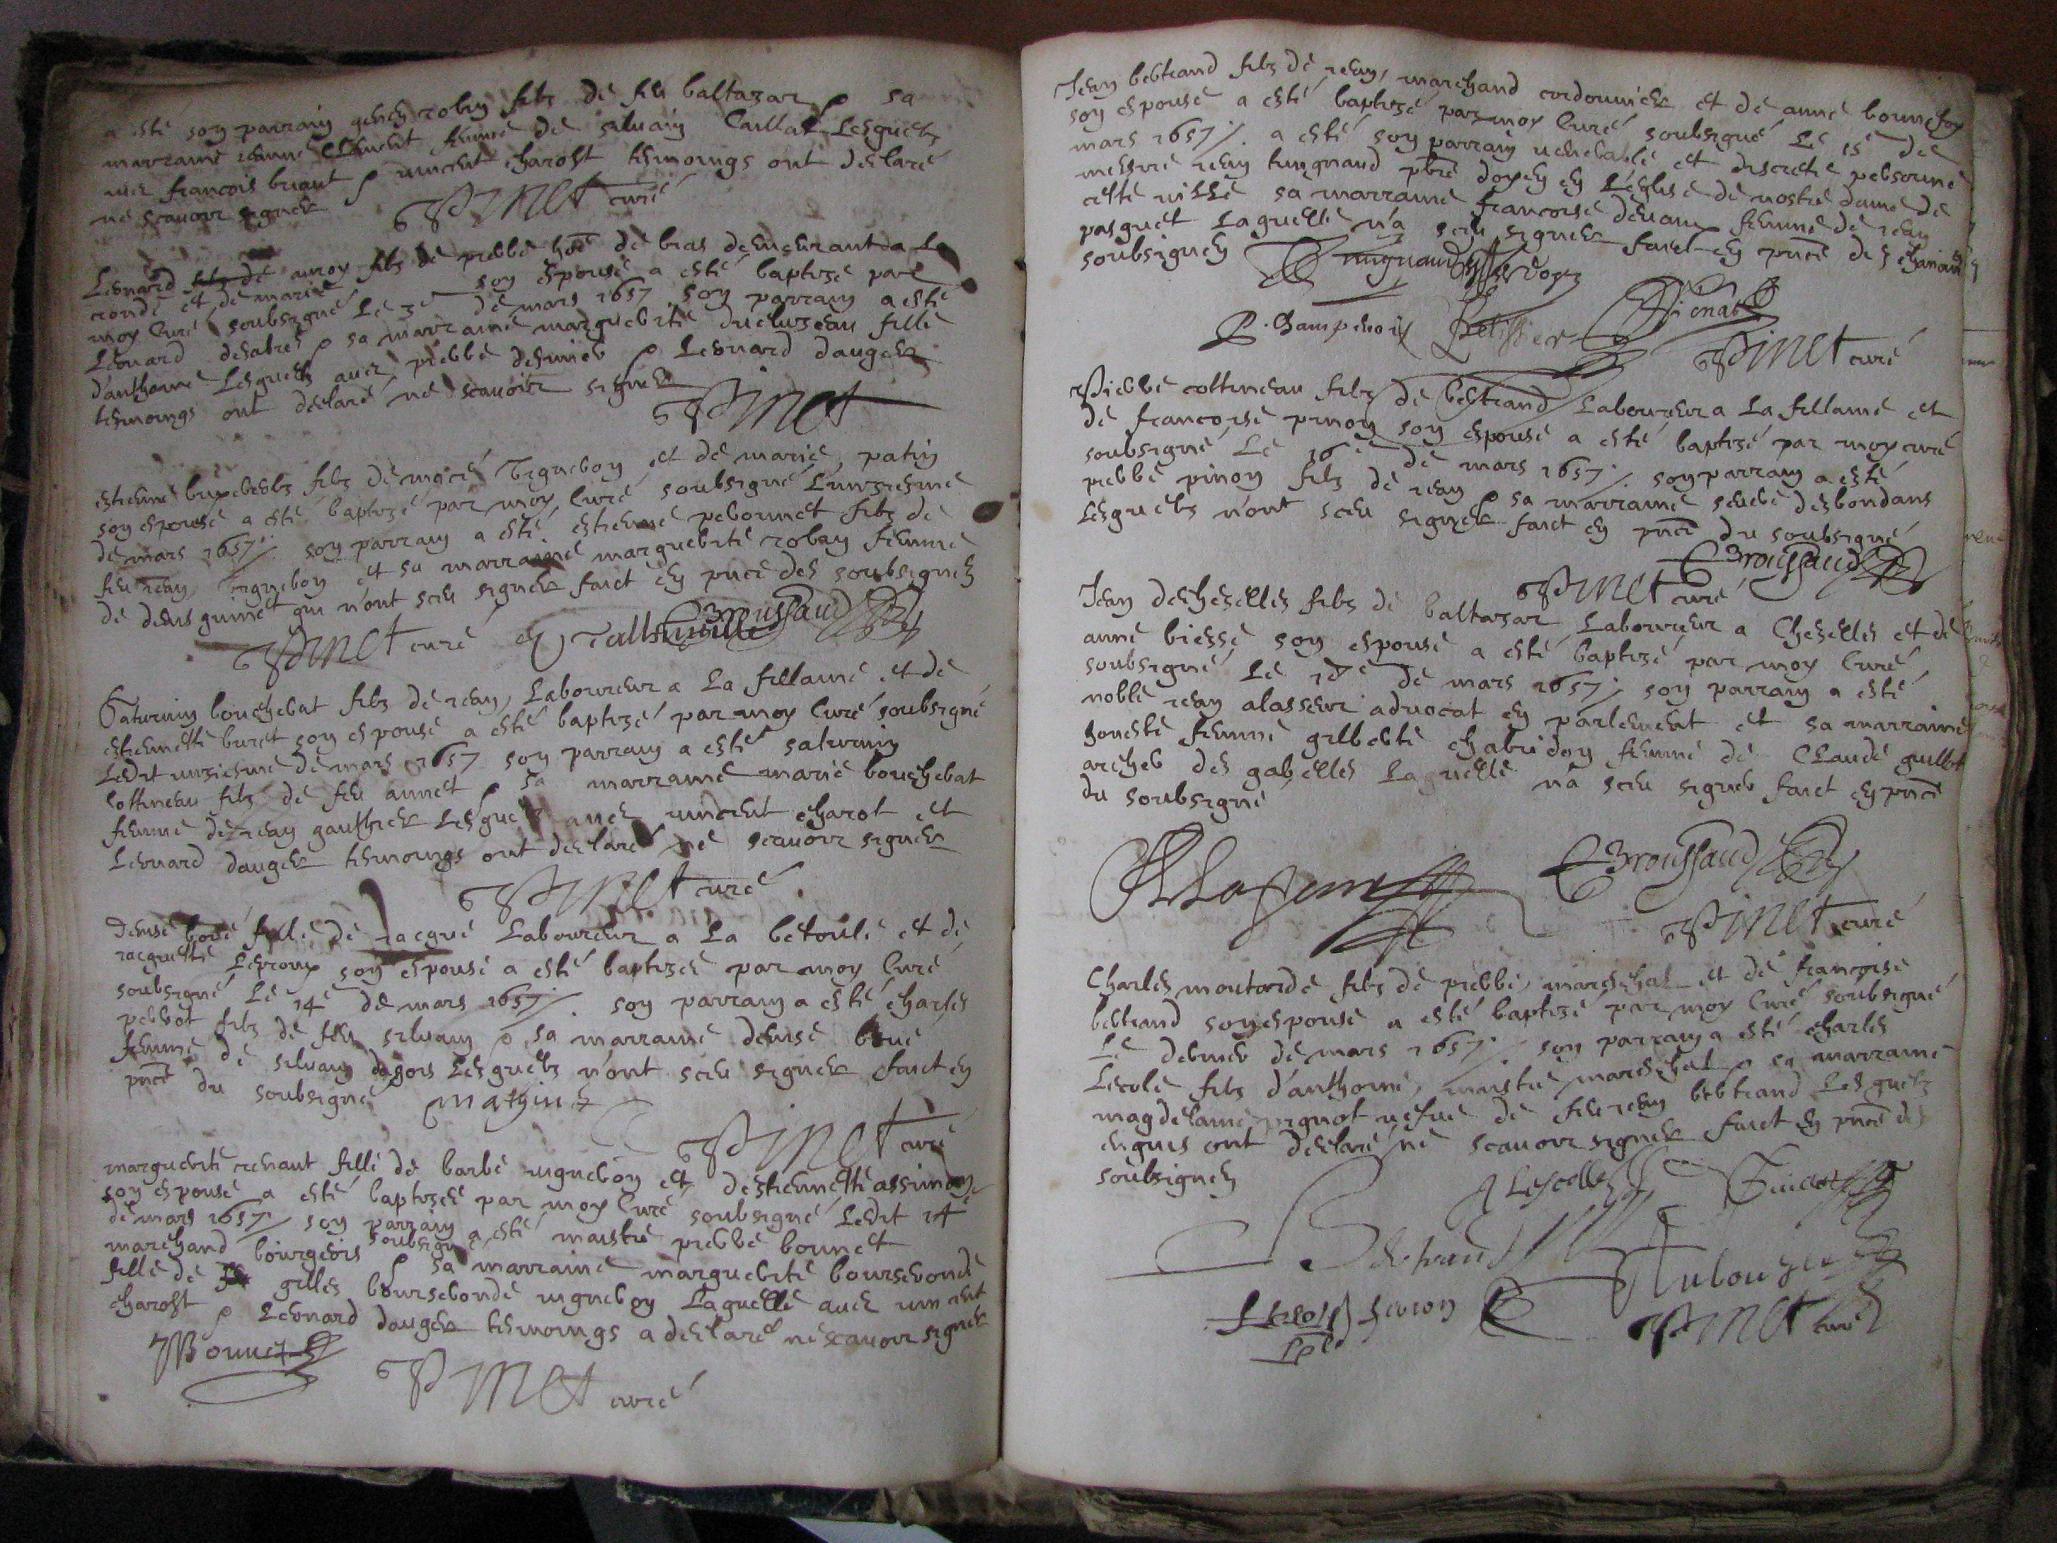 a esté son parrain robin filz de feu baltazar & sa
marraine jeanne Clement femme de silvain Caillat Lesquelz
avec francois briant & vincent charost tesmoings ont declaré
ne scavoir signer Pinet curé
Leonard filz de amoy filz de pierre de bras demeurant a La
ronde et de marie son espouse a esté baptizé par
moy Curé soubsigné Le 3e de mars 1657 son parrain a esté
Leonard desabres & sa marraine marguerite ducluzeau fille
d'anthoine Lesquelz avec pierre desmier & Leonard dauger
tesmoings ont declaré ne scavoir signer
Pinet
estienne filz de et de marie patin
son espouse a esté baptizé par moy Curé soubsigné L'unziesme
de mars 1657 ./. son parrain a esté estienne peronnet filz de
feu jean, vigneron et sa marraine marguerite robay femme
de qui n'ont sceu signer faict en pnce des soubsignez
Pinet curé Broussaud
Saturnin boucherat filz de jean, Laboureur a La fillaine et de
estiennette buret son espouse a esté baptizé par moy Curé soubsigné
Ledit unziesme de mars 1657 son parrain a esté saturnin
Cottineau filz de feu annet & sa marraine marie boucherat
femme de jean gaulthier Lesquelz avec vincent charot et
Leonard dauger tesmoings ont declaré ne scavoir signer
Pinet curé
denise boué fille de Jacque Laboureur a La betoule et de
jacquette Leproux son espouse a esté baptizée par moy Curé
soubsigné Le 14e de mars 1657 ./. son parrain a esté charles
perrot filz de feu silvain & sa marraine denise boué
femme de silvain dagois Lesquelz n'ont sceu signer faict en
pnce du soubsigné mathinez
Pinet curé
marguerite crenaut fille de barbe vigneron et destiennette assimon
son espouse a esté baptizée par moy Curé soubsigné Ledit 14e
de mars 1657 ./. son parrain a esté maistre pierre bonnet
marchand bourgeois soubsigné & sa marraine marguerite bourseronde
fille de gilles bourseronde vigneron Laquelle avec vincent
charost & Leonard dauger tesmoings a declaré ne scavoir signer
Bonnet Pinet curé
Jean bertrand filz de jean, marchand cordonnier et de anne bonnefoy
son espouse a esté baptizé par moy Curé soubsigné Le 15e de
mars 1657 ./. a esté son parrain venerable et discrete personne
messire jean tuignaud pbre doyen en L'eglise de nostre dame de
cette ville sa marraine francoise devaux femme de jean
pasquet Laquelle n'a sceu signer faict en pnce des
soubsignez Tuignaud doyen
Pinet curé
Pierre cottineau filz de bertrand Laboureur a La fillaine et
de francoise pinon son espouse a esté baptizé par moy curé
soubsigné Le 16e de mars 1657 ./. son parrain a esté
pierre pinon filz de jean & sa marraine desbordans
Lesquelz n'ont sceu signer faict en pnce du soubsigné
Pinet curé Broussaud
Jean dechezelles filz de baltazar Laboureur a Chezelles et de
anne biesse son espouse a esté baptizé par moy Curé
soubsigné Le de mars 1657 ./. son parrain a esté
noble jean alasseur advocat en parlement et sa marraine
honeste femme gilberte chabridon femme de Claude guillot
archer des gabelles Laquelle n'a sceu signer faict en pnce
du soubsigné
Broussaud
Pinet curé
Charles moutarde filz de pierre, mareschal et de francoise
bertrand son espouse a esté baptizé par moy Curé soubsigné
Le dernier de mars 1657 ./. son parrain a esté charles
Lecole filz d'anthoine, maistre mareschal & sa marraine
magdelaine pignot vefve de feu jean bertrand Lesquelz
enquis ont declaré ne scavoir signer faict en pnce des
soubsignez
Bertrand
Pinet curé